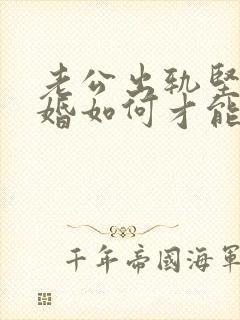 老公出轨坚
婚如何才能
千年帝國海軍